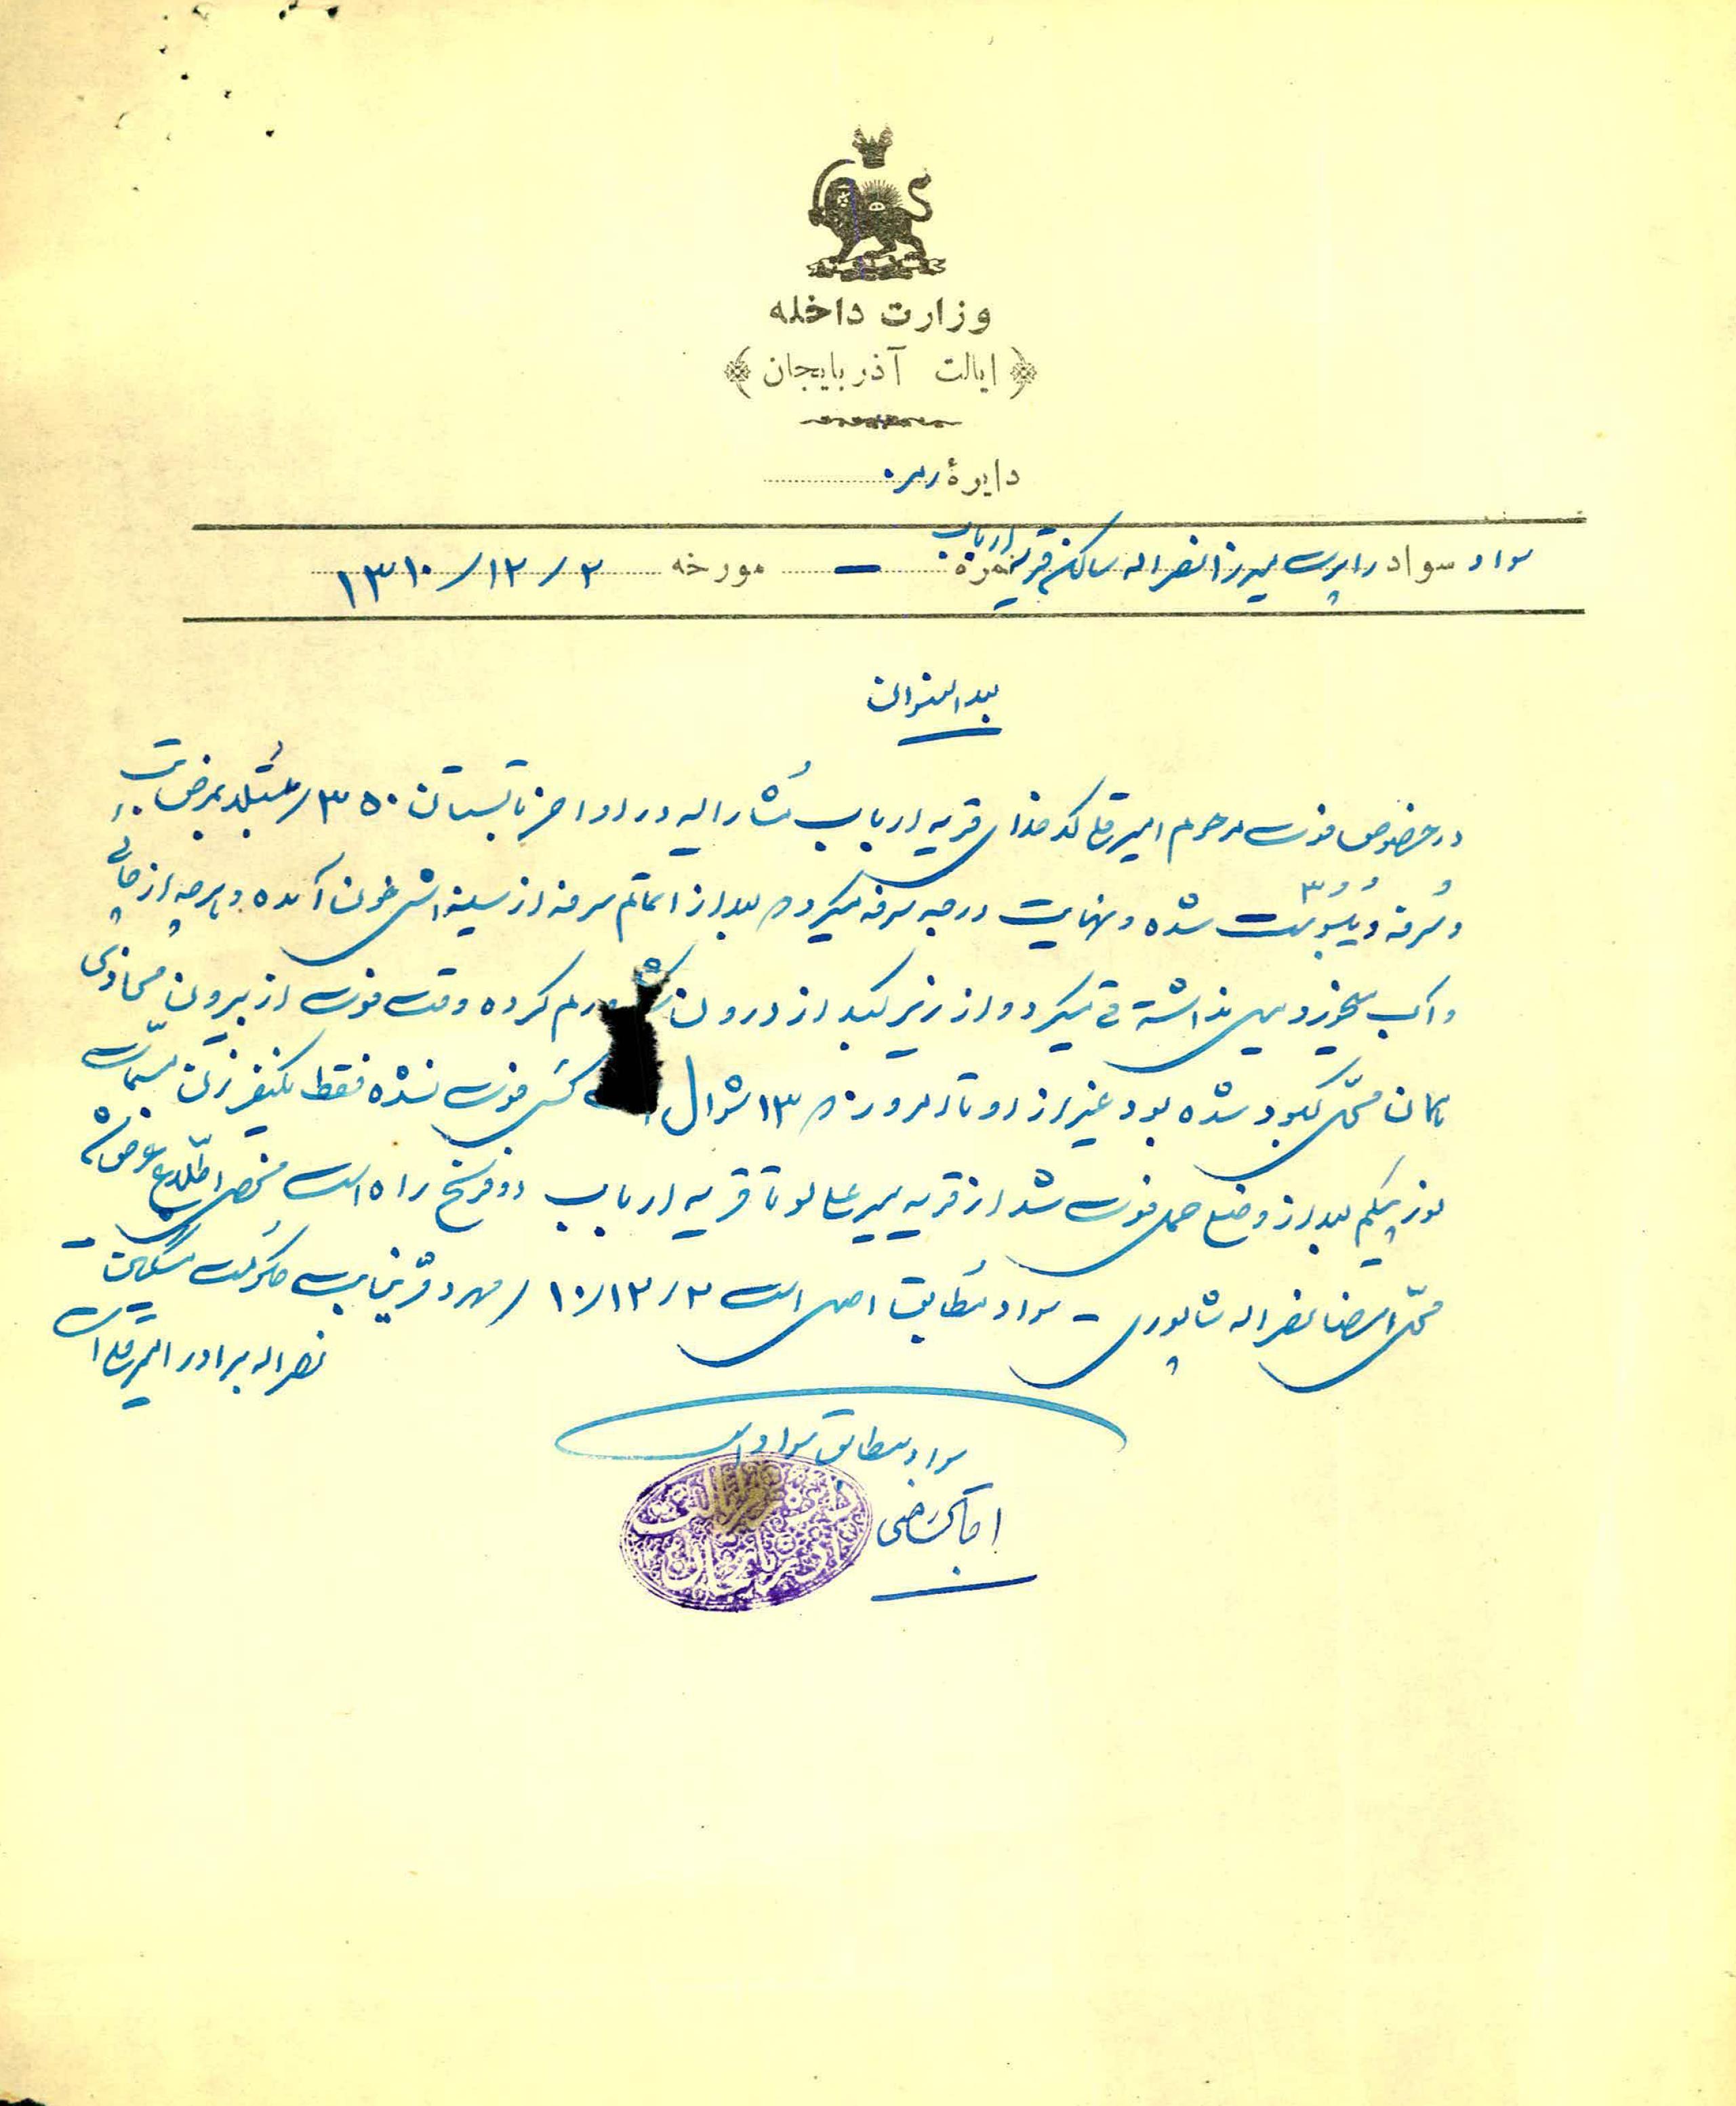 وزارت داخله
ایالت آذربایجان
دایرۀ
سواد سواد راپرت میرزا نصراله ساکن قریه ارباب نمره — مورخه ۲ / ۱۲ / ۱۳۱۰
بعدالعنوان
در خصوص فوت مرحوم امیرقلی کدخدای قریه ارباب مشارالیه در اواخر تابستان ۳۵۰ مبتلا بمرض تب
و سرفه و یبوست شده و نهایت درجه سرفه میکرد و بعد از اتمام سرفه از سینه اش خون آمده و پارچه از
و آب میخورد میل نداشته قی میکرد و از زیر کبد از درون ورم کرده وقت فوت از بیرون محاذی
همان محل کبود شده بود غیر از او تا امروز ۱۳ شوال کسی فوت نشده فقط یکنفر زن مسمات
بعد از وضع حمل فوت شد از قریه میرعلالو تا قریه ارباب دو فرسخ راه است محض اطلاع عرض شد
محل امضا نصراله شاپوری - سواد مطابق اصل است ۲ / ۱۲ / ۱۰ مهر دفتر نیابت حکومت مشکین -
نصراله برادر امیرقلی است
سواد مطابق سواد است
دفتر ایالت آذربایجان